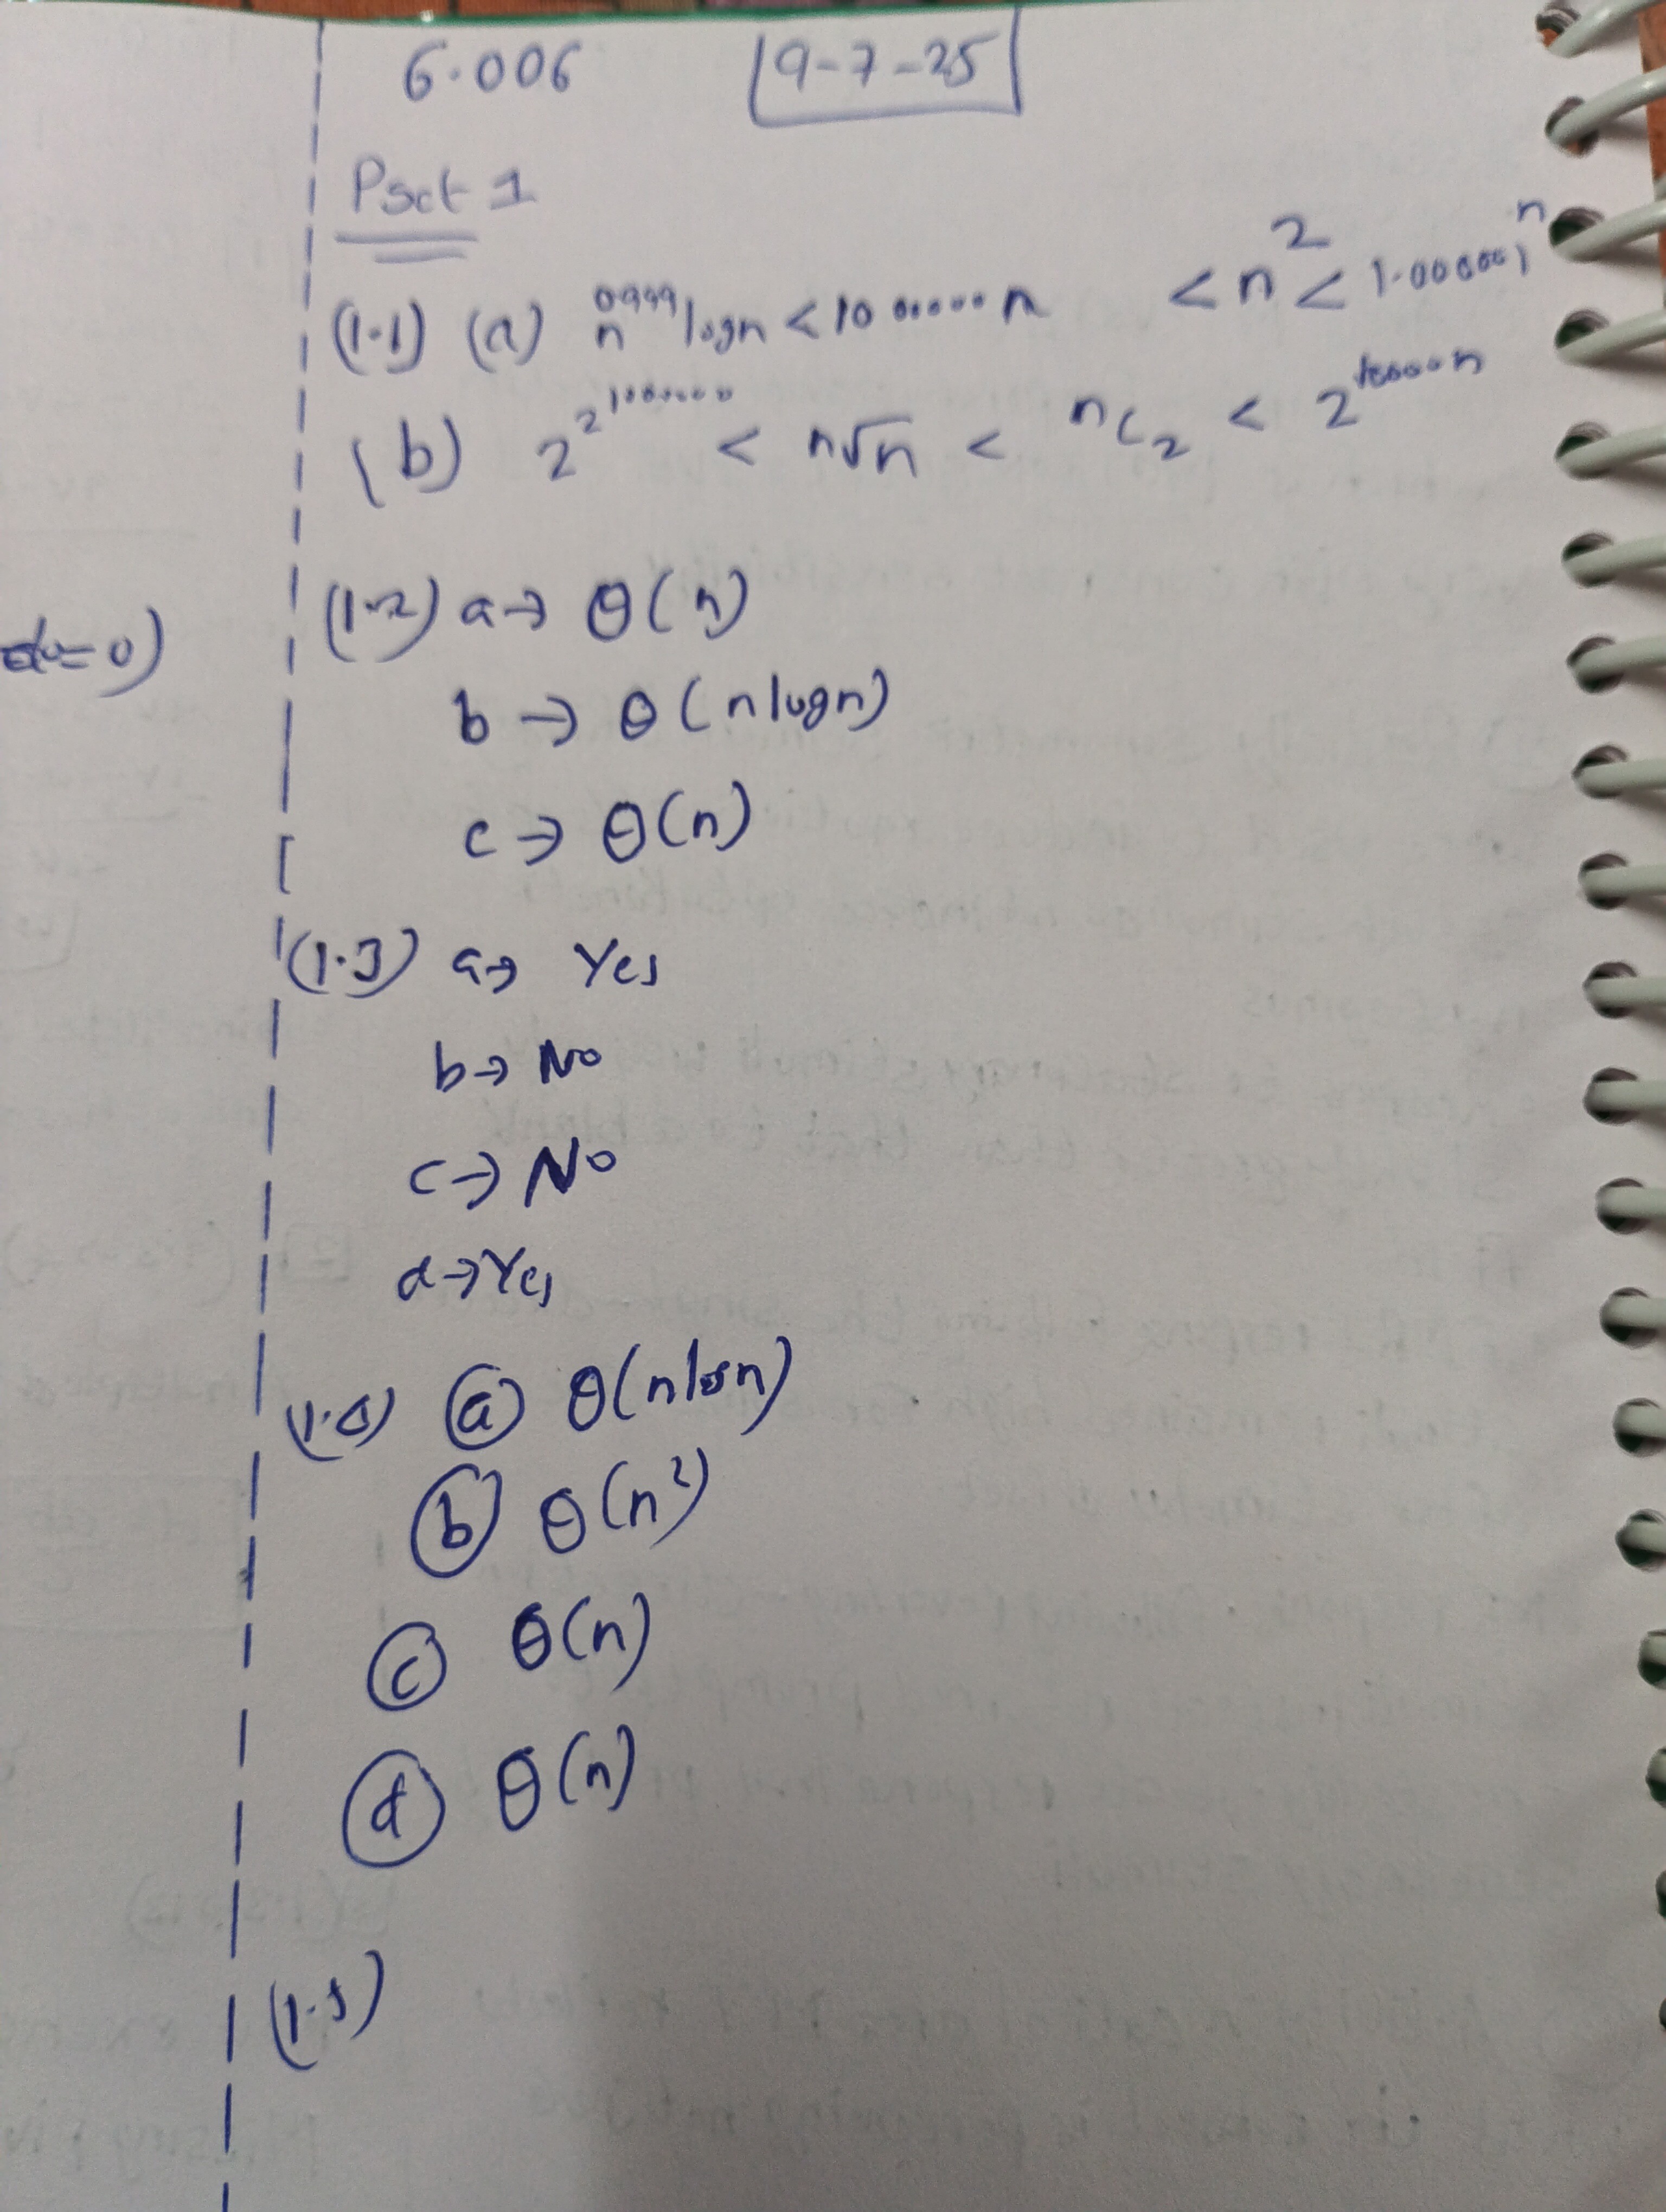 6.006 9-7-25
Pset 1
(1.1) (a) n^0.9999 log n < 10000000 n < n^2 < 1.000001^n
(b) 2^2^1000000 < n√n < nC2 < 2^100000n
(1.2) a → θ(n)
b → θ(n log n)
c → θ(n)
(1.3) a → Yes
b → No
c → No
d → Yes
a θ(n log n)
b θ(n²)
c θ(n)
d θ(n)
(1.5)